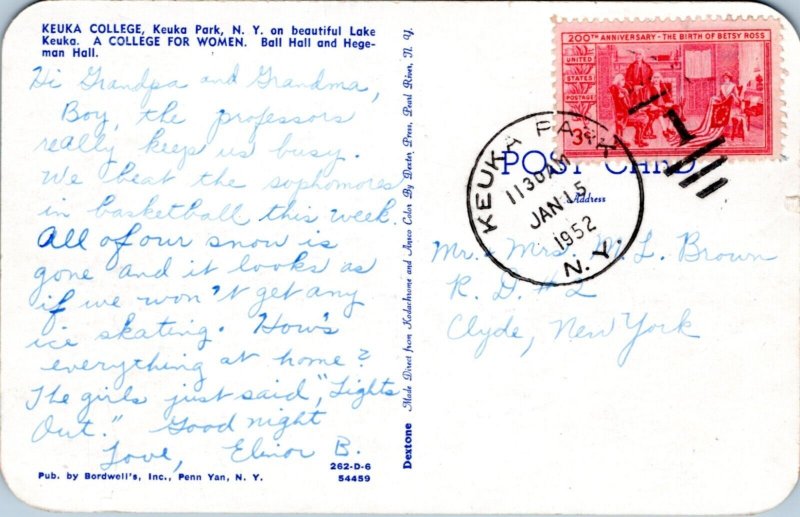 KEUKA COLLEGE, Keuka Park, N. Y. on beautiful Lake
Keuka. A COLLEGE FOR WOMEN. Ball Hall and Hege-
man Hall.
Hi Grandpa and Grandma,
Boy, the professors
really keep us busy.
We beat the sophomores
in basketball this week.
All of our snow is
gone and it looks as
if we won't get any
ice skating. How's
everything at home?
The girls just said, "Lights
Out." Good night
Love, Elinor B.
262-D-6
Pub. by Bordwell's, Inc., Penn Yan, N. Y.
54459
Dextone Made Direct from Kodachrome and Ansco Color By Dexter Press, Pearl River, N. Y.
200TH ANNIVERSARY - THE BIRTH OF BETSY ROSS
UNITED
STATES
POSTAGE
3¢
KEUKA PARK
1130 AM
JAN 15
1952
N. Y.
1
POST CARD
Address
Mr. & Mrs. M. L. Brown
R. D. #2
Clyde, New York